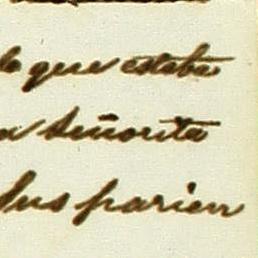 que estaba
señorita
sus parien